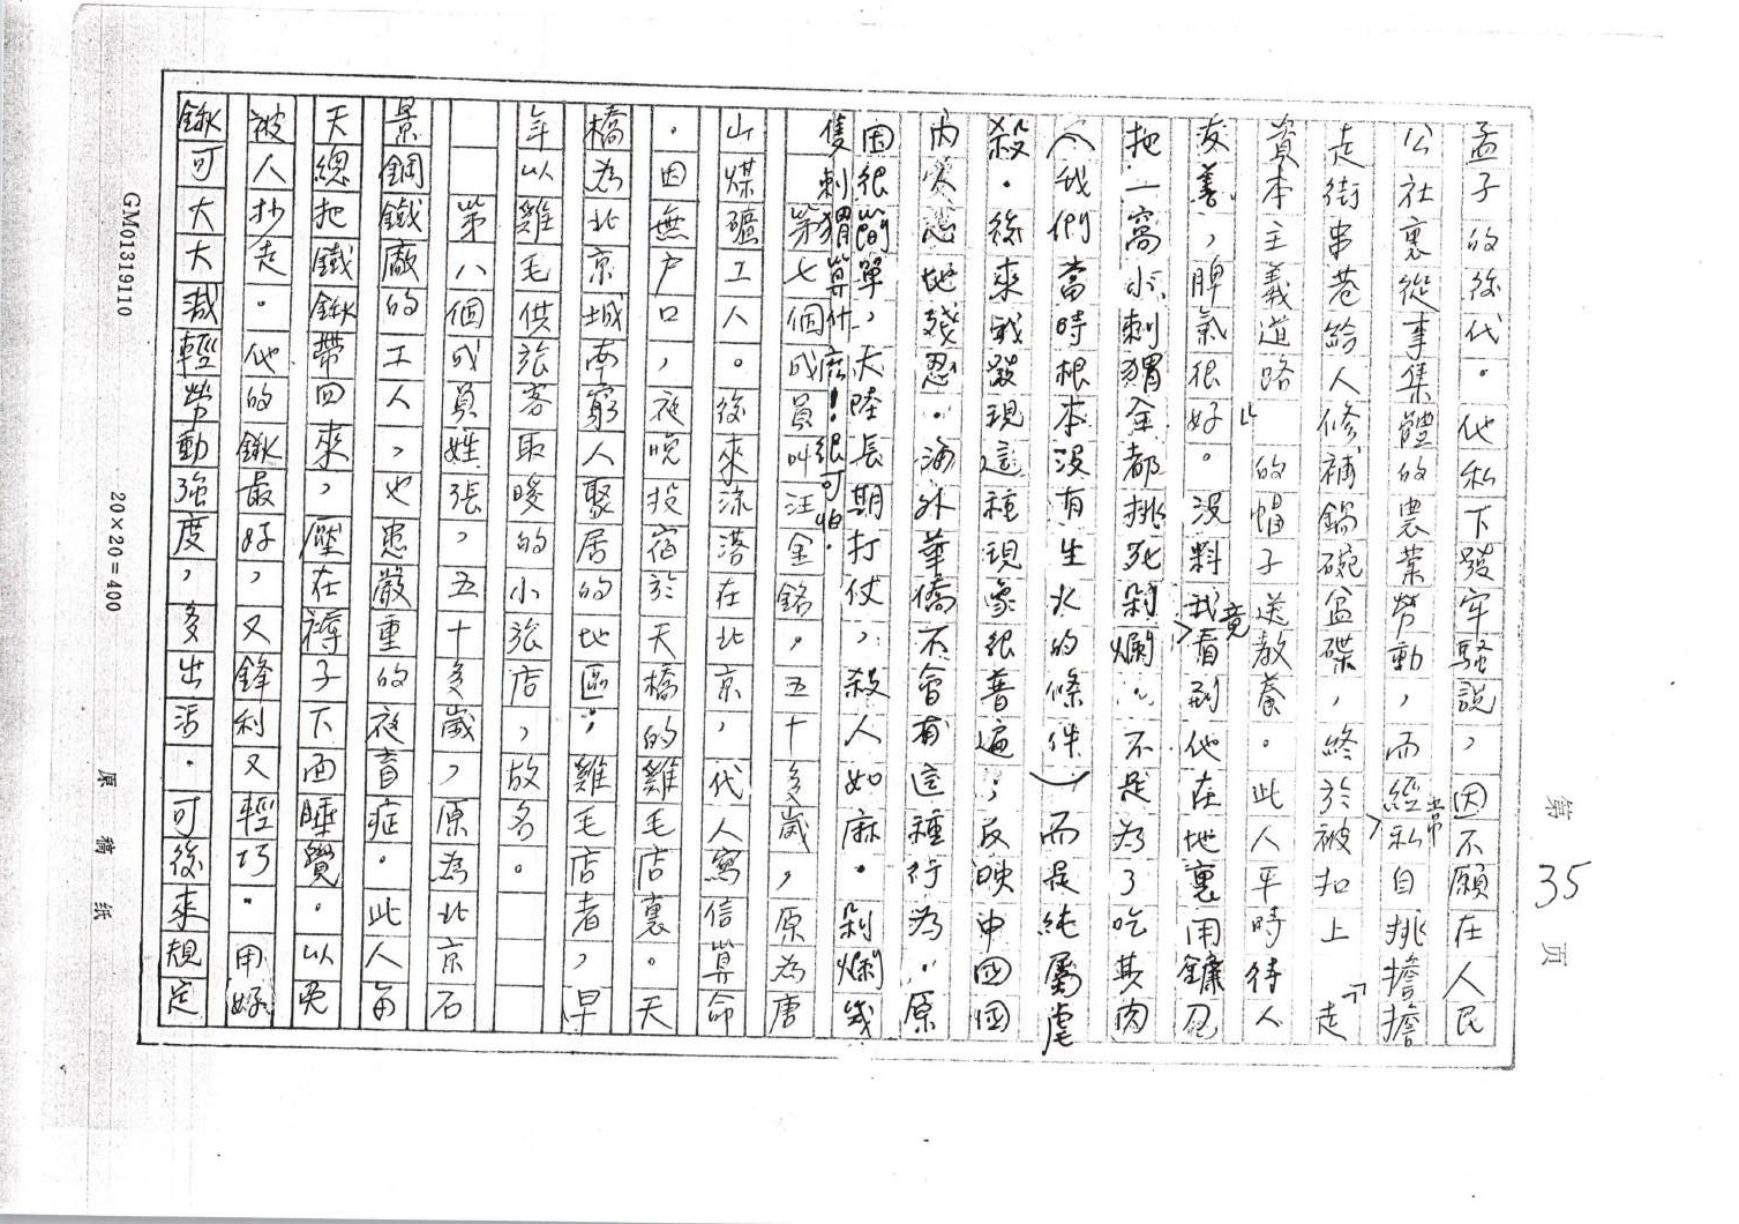 第 35 页
孟子的後代。他私下發牢騷説，因不願在人民
公社裏從事集體的農業勞動，而經常私自挑擔擔
走街串巷給人修補鍋碗盆碟，終於被扣上「走
資本主義道路」的帽子送教養。此人平時待人
友善，脾氣很好。没料我竟看到他在地裏用鐮刀
把一窩小刺猬全都挑死剁爛，不是為了吃其肉
（我們當時根本没有生火的條件）而是純屬虐
殺．後來我發現這種現象很普遍；反映中國國
内人心地殘忍．海外華僑不會有這種行為．原
因很簡單，大陸長期打仗，殺人如麻．剁爛幾
隻刺猬算什麽！很可怕．
第七個成員叫汪金銘，五十多歲，原為唐
山煤礦工人。後來流落在北京，代人寫信算命
．因無户口，夜晚投宿於天橋的雞毛店裏。天
橋為北京城南窮人聚居的地區；雞毛店者，早
年以雞毛供旅客取暖的小旅店，故名。
第八個成員姓張，五十多歲，原為北京石
景鋼鐵廠的工人，也患嚴重的夜盲症．此人每
天總把鐵鍬帶回來，壓在褥子下面睡覺．以免
被人抄走．他的鍬最好，又鋒利又輕巧．用好
鍬可大大減輕勞動強度，多出活．可後來規定
GM01319110
20×20=400
原稿纸